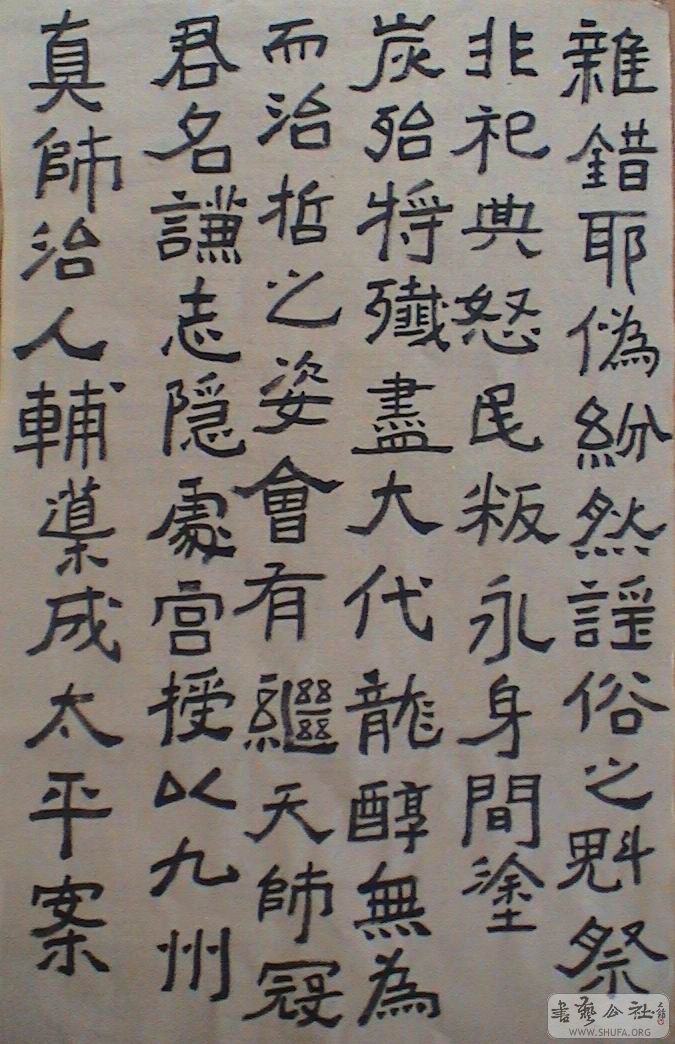 雜錯耶偽紛然謡俗之魁祭
非祀典怒民粄永身間塗
炭殆将殲盡大代龍醇無為
而治哲之姿會有繼天師寇
君名謙志隠處宫授以九州
真師治人輔導成太平案
書藝公社
WWW.SHUFA.ORG